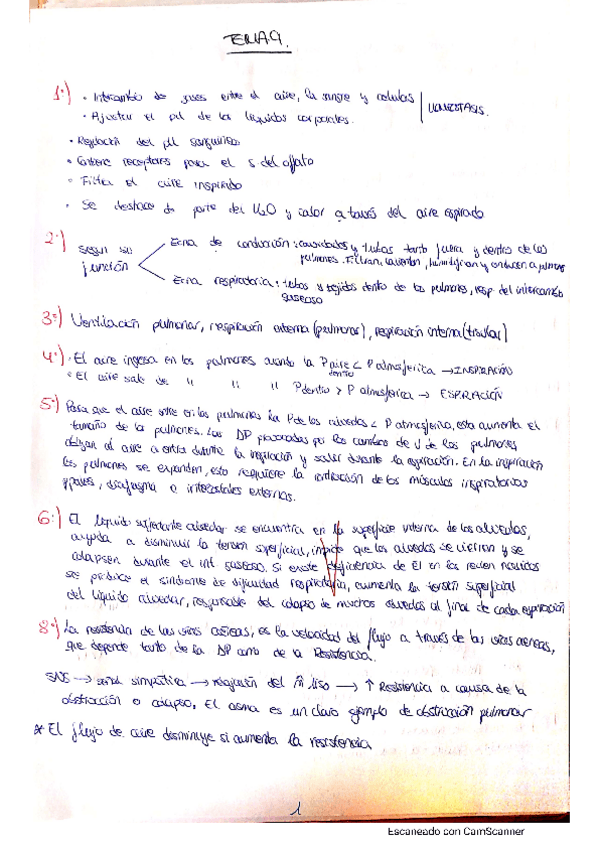 TEMA 9.
1º) · Intercambio de gases entre el aire, la sangre y celulas
· Ajustar el pH de los líquidos corporales. HOMEOSTASIS.
· Regulación del pH sanguíneo
· Contiene receptores para el s del olfato
· Filtra el aire inspirado
· Se deshace de parte del H2O y calor a través del aire espirado
2º) Según su función
Zona de conducción: cavidades y tubos tanto fuera y dentro de los pulmones. Filtran, calientan, humidifican y conducen a pulmones
Zona respiratoria: tubos y tejidos dento de los pulmones, resp del intercambio gaseoso
3º) Ventilación pulmonar, respiración externa (pulmonar), respiración interna (tisular)
4º) · El aire ingresa en los pulmones cuando la P aire dentro < P atmosferica → INSPIRACIÓN
· El aire sale de " " " P dentro > P atmosferica → ESPIRACIÓN
5º) Para que el aire entre en los pulmones la P de los alveolos < P atmosferica, esta aumenta el
tamaño de los pulmones. Las DP provocadas por los cambios de V de los pulmones
obligan al aire a entrar durante la inspiración y salir durante la espiración. En la inspiración
los pulmones se expanden, esto requiere la contracción de los músculos inspiratorios
diafragma e intercostales externos.
6º) El líquido surfactante alveolar se encuentra en la superficie interna de los alveolos,
ayuda a disminuir la tensión superficial, impide que los alveolos se cierren y se
colapsen durante el int. gaseoso. Si existe deficiencia de él en los recien nacidos
se produce el sindrome de dificultad respiratoria, aumenta la tensión superficial
del líquido alveolar, responsable del colapso de muchos alveolos al final de cada espiración
8º) La resistencia de las vías aéreas, es la velocidad del flujo a través de las vías aéreas,
que depende tanto de la DP como de la Resistencia.
SNS → señal simpática → relajación del m liso → ↑ Resistencia a causa de la
obstrucción o colapso, El asma es un claro ejemplo de obstrucción pulmonar
* El flujo de aire disminuye si aumenta la resistencia
1
Escaneado con CamScanner